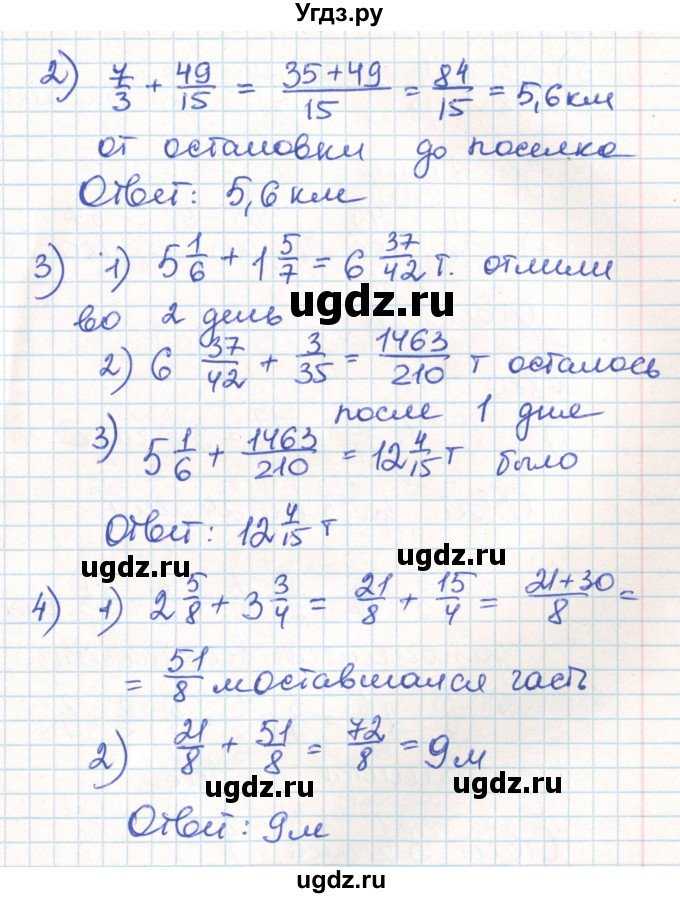 Угдз.ру
2) 7/3 + 49/15 = (35+49)/15 = 84/15 = 5,6 км
от остановки до поселка
Ответ: 5,6 км
3) 1) 5 1/6 + 1 5/7 = 6 37/42 т. отлили
ugdz.ru
во 2 день
2) 6 37/42 + 3/35 = 1463/210 т осталось
ugdz.ru
после 1 дня
3) 5 1/6 + 1463/210 = 12 4/15 т было
Ответ: 12 4/15 т
ugdz.ru
4) 1) 2 5/8 + 3 3/4 = 21/8 + 15/4 = (21+30)/8 =
= 51/8 м оставшаяся часть
ugdz.ru
2) 21/8 + 51/8 = 72/8 = 9 м
ugdz.ru
Ответ: 9 м
ugdz.ru